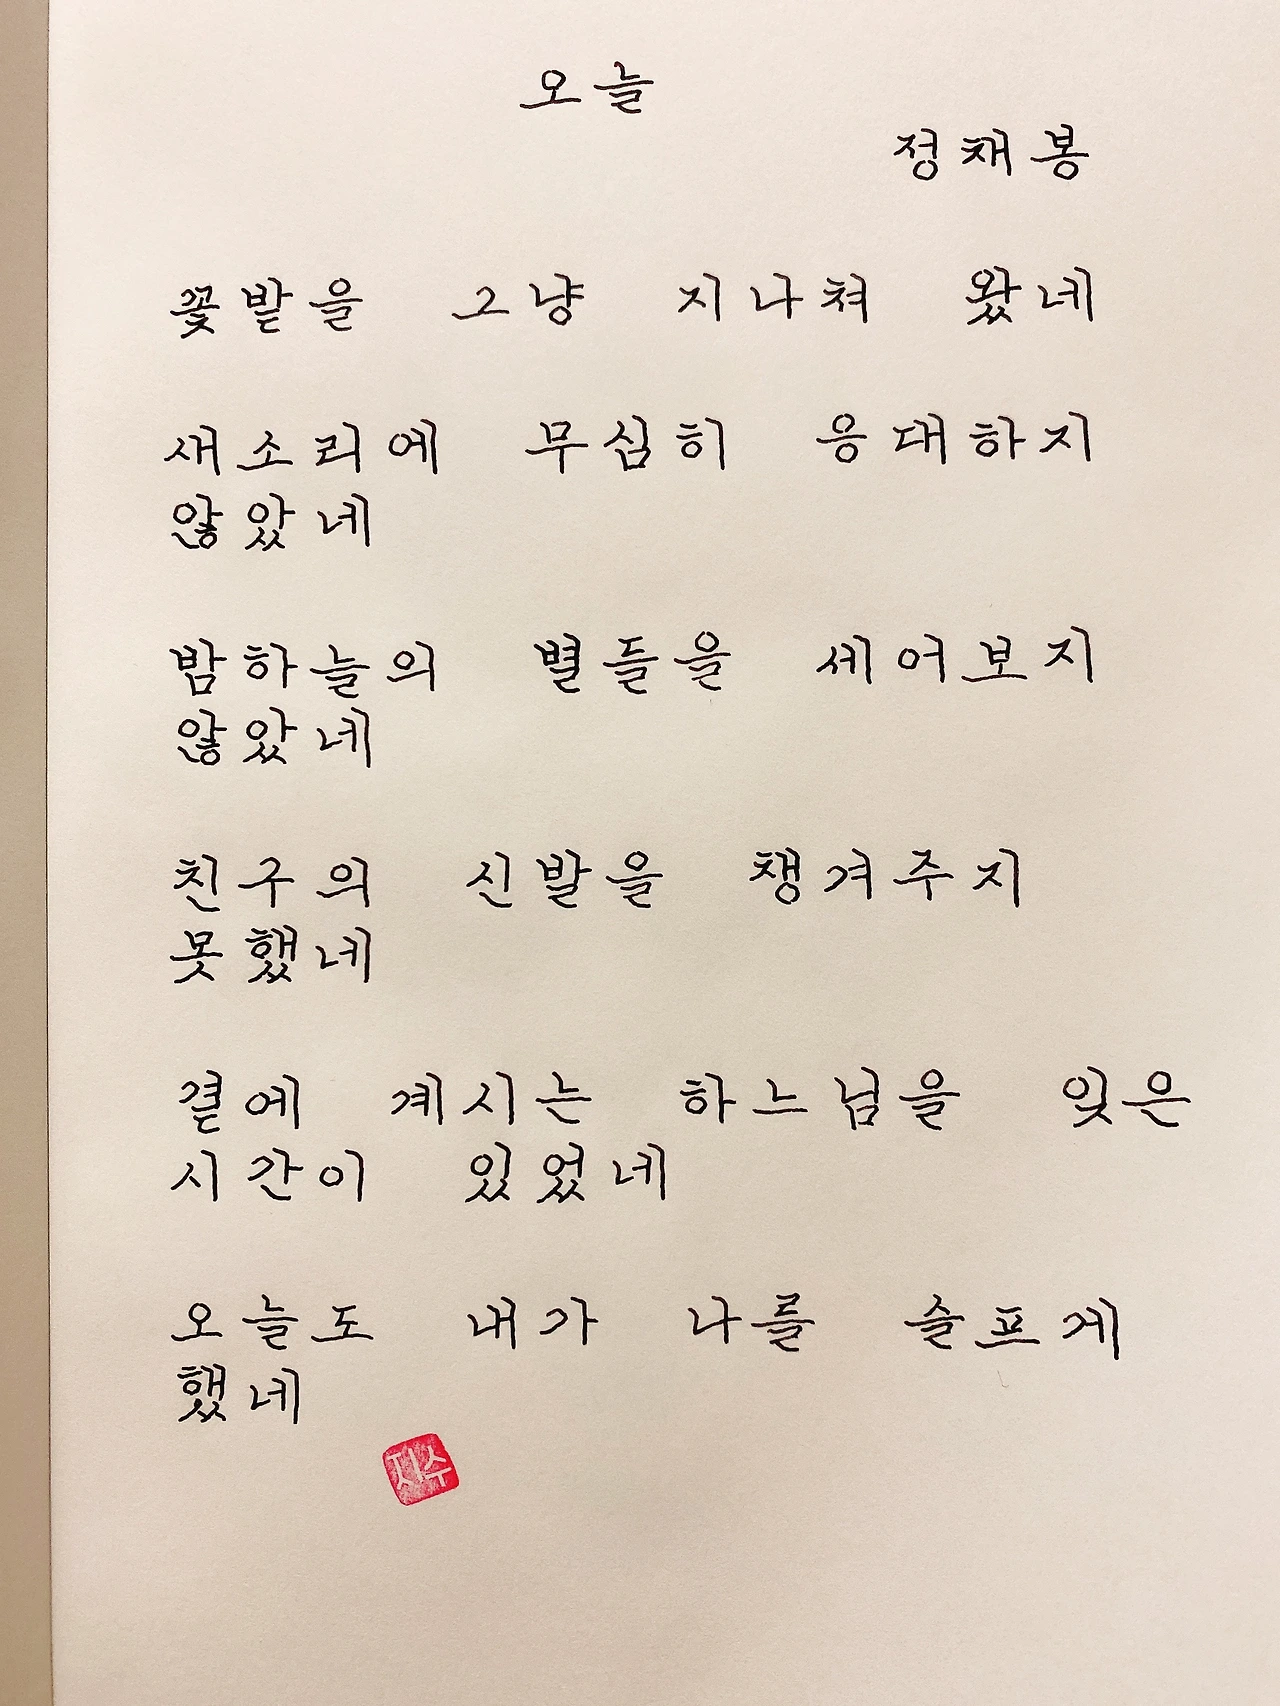 오늘
정채봉
꽃밭을 그냥 지나쳐 왔네
새소리에 무심히 응대하지
않았네
밤하늘의 별들을 세어보지
않았네
친구의 신발을 챙겨주지
못했네
곁에 계시는 하느님을 잊은
시간이 있었네
오늘도 내가 나를 슬프게
했네